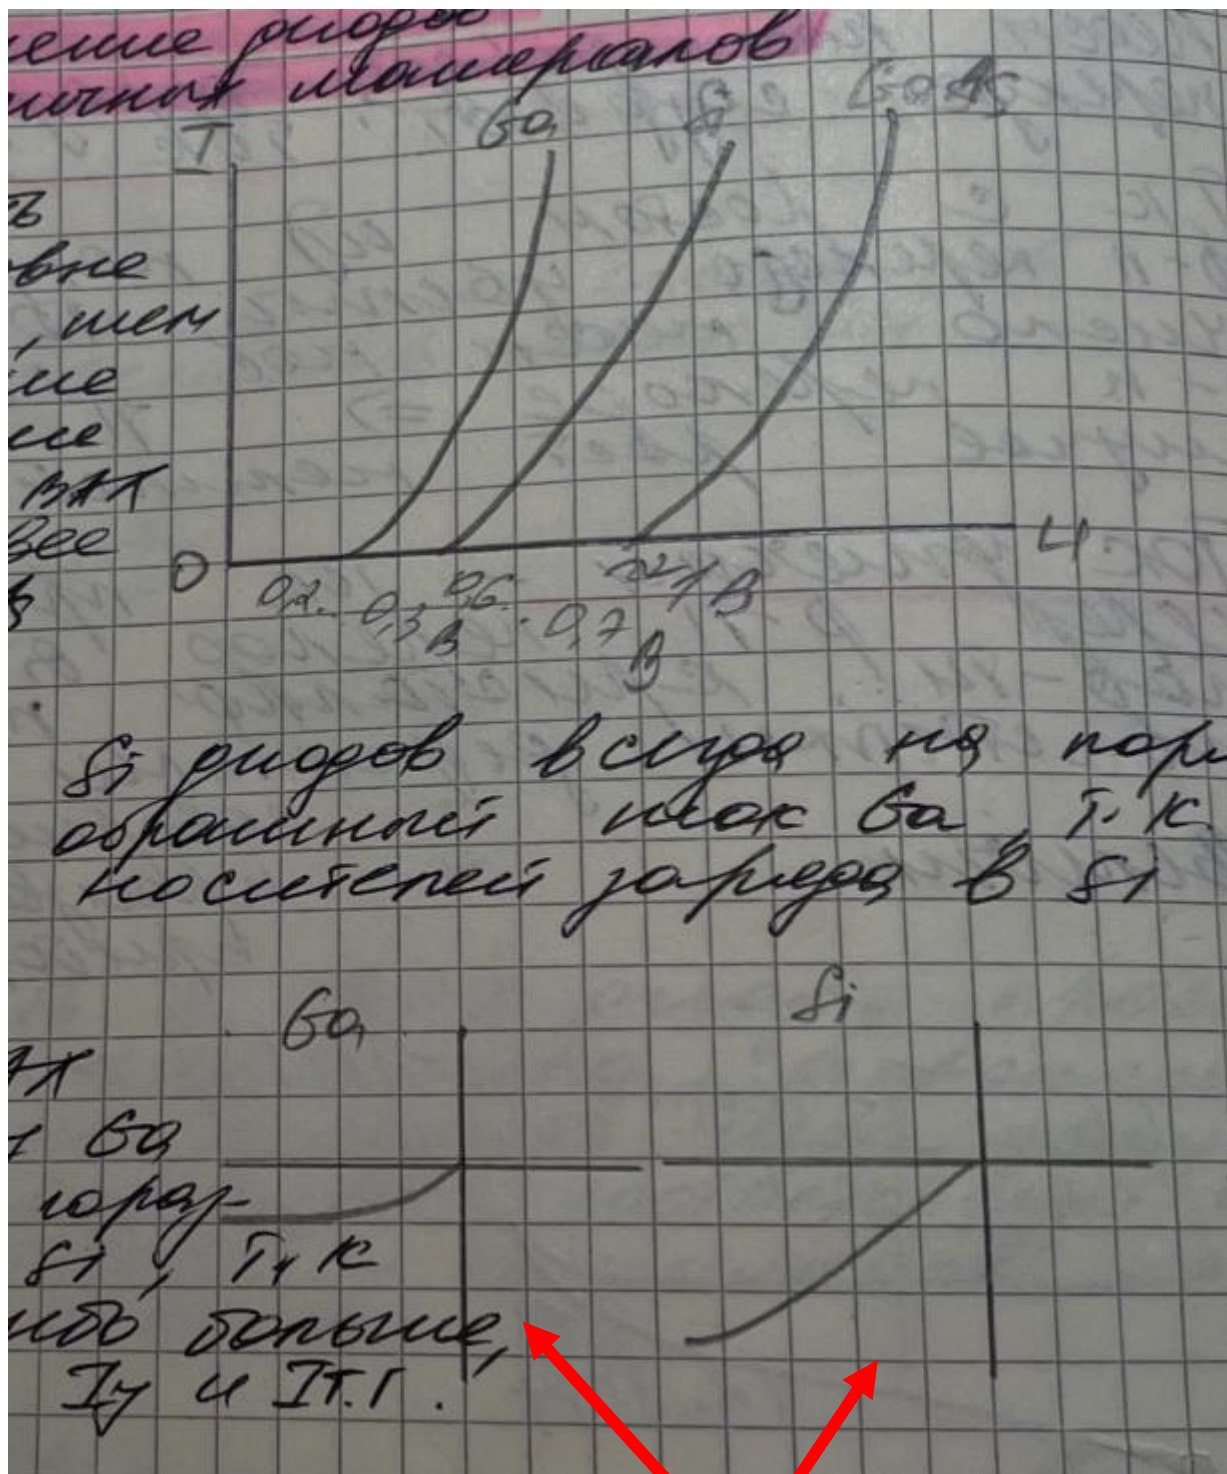 чение диодов
личных материалов
I Ga Si GaAs
ть
вне
, чем
ние
ние
ВАХ
вее
0 U
0,2.. 0,3 В 0,6.. 0,7 В ≈1В
Si диодов всегда на пор
обратный ток Ga, т.к.
носителей заряда в Si
Ga Si
АХ
Ga
гораз-
Si, т.к
больше,
Iу и Iт.г.